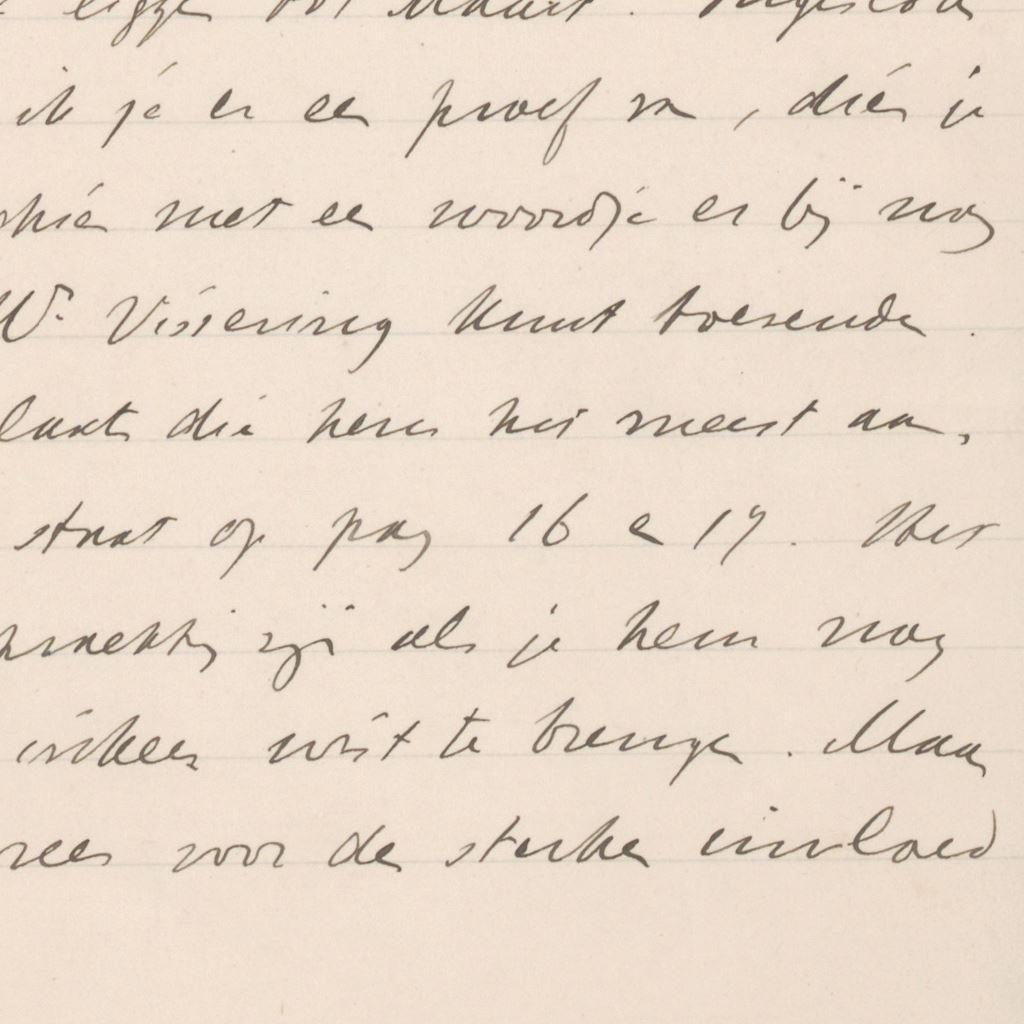 liggen tot Maart. Ingesloten
ik je er een proef van, dien je
schien met een woordje er bij nog
Wr. Vissering kunt toezenden.
laats die heren het meest aan,
staat op pag 16 en 17. Het
prachtig zijn als je hem nog
inkeer wist te brengen. Maar
vrees voor de sterke invloed